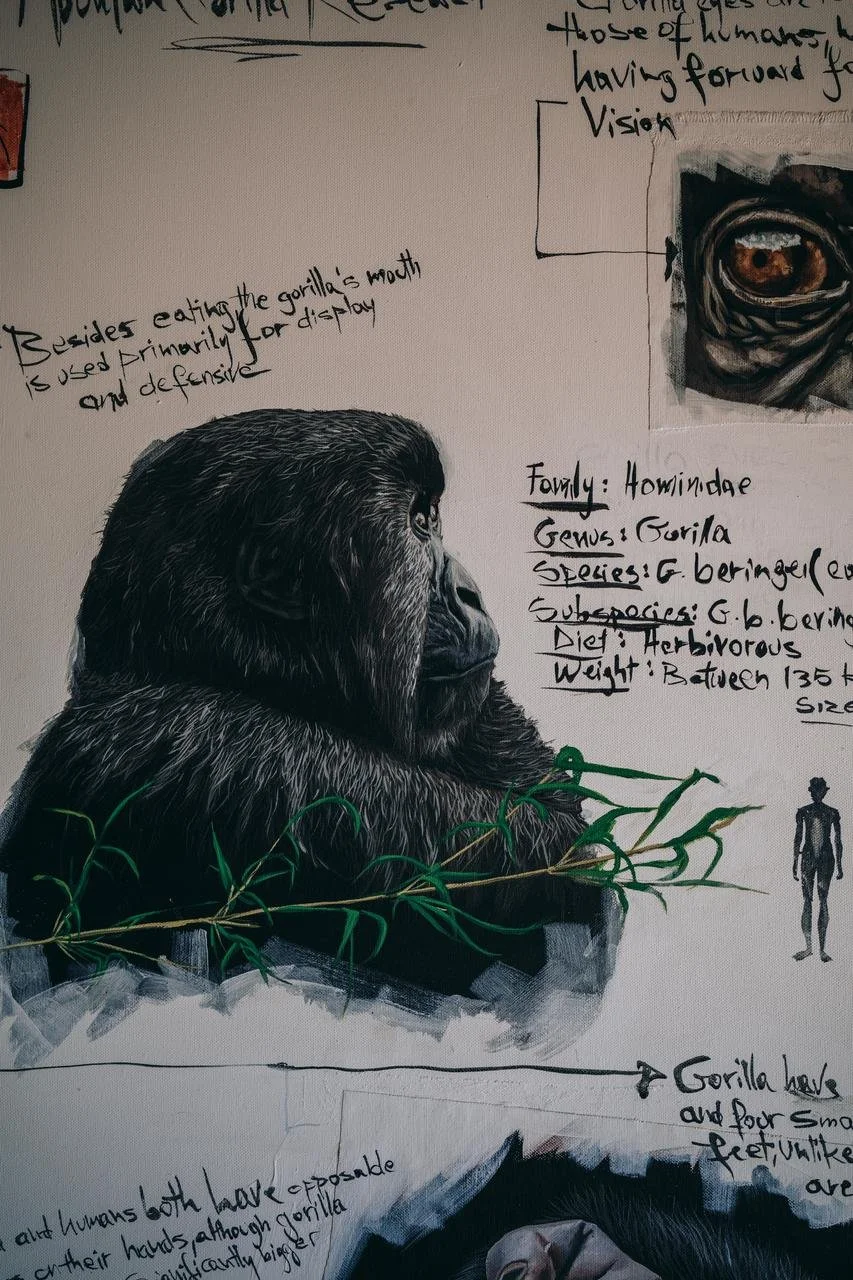 Mountain Gorilla Research
Gorilla eyes are
those of humans,
having forward
Vision
Besides eating, the gorilla's mouth
is used primarily for display
and defensive
Family: Hominidae
Genus: Gorilla
Species: G. beringei (
Subspecies: G.b.
Diet: Herbivorous
Weight: Between 135
Size
Gorilla have
and four
feet, unlike
are
and humans both have opposable
on their hands, although gorilla
significantly bigger